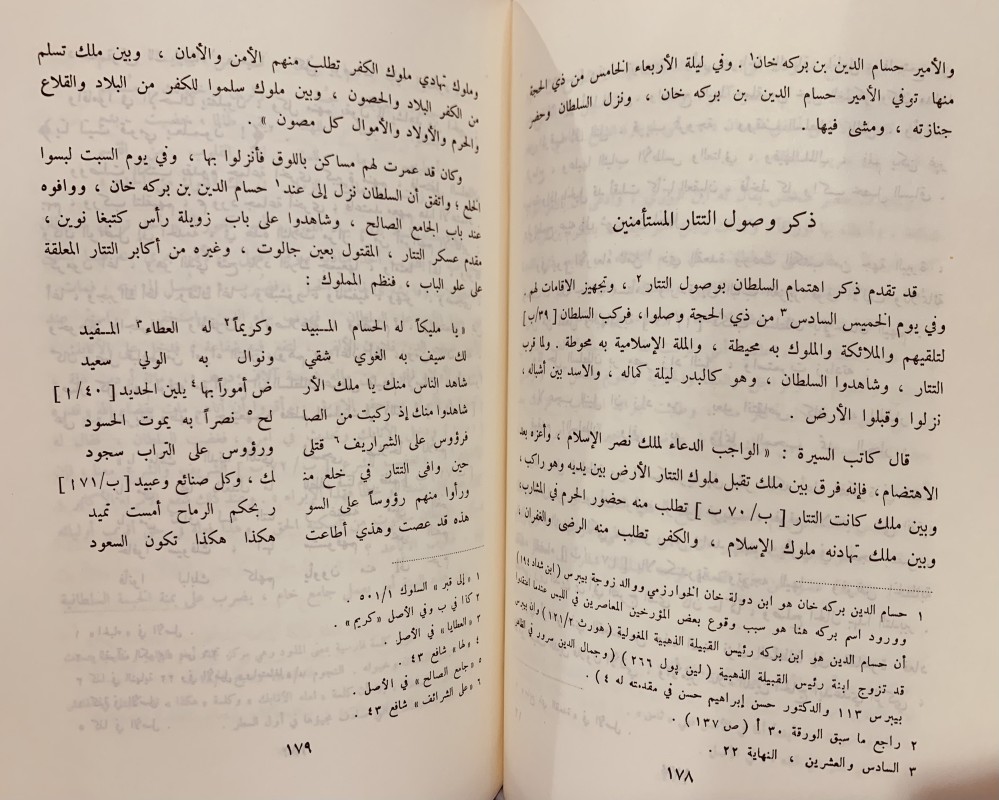 والأمير حسام الدين بن بركه خان١ . وفي ليلة الأربعاء الخامس من ذي الحجة
منها توفي الأمير حسام الدين بن بركه خان ، ونزل السلطان وحضر
جنازته ، ومشى فيها .
ذكر وصول التتار المستأمنين
قد تقدم ذكر اهتمام السلطان بوصول التتار٢ ، وتجهيز الاقامات لهم .
وفي يوم الخميس السادس٣ من ذي الحجة وصلوا، فركب السلطان [٣٩/ب]
لتلقيهم والملائكة والملوك به محيطة ، والملة الإسلامية به محوطة . ولما قرب
التتار ، وشاهدوا السلطان ، وهو كالبدر ليلة كماله ، والاسد بين أشباله ،
نزلوا وقبلوا الأرض .
قال كاتب السيرة : « الواجب الدعاء لملك نصر الإسلام ، وأعزه بعد
الاهتضام، فإنه فرق بين ملك تقبل ملوك التتار الأرض بين يديه وهو راكب،
وبين ملك كانت التتار [ ب/ ٧٠ ب ] تطلب منه حضور الحرم في المشارب،
وبين ملك تهادنه ملوك الإسلام ، والكفر تطلب منه الرضى والغفران ،
١ حسام الدين بركه خان هو ابن دولة خان الخوارزمي ووالد زوجة بيبرس (ابن شداد ١٩٤)
وورود اسم بركه هنا هو سبب وقوع بعض المؤرخين المعاصرين في اللبس عندما اعتقدوا
أن حسام الدين هو ابن بركه رئيس القبيلة الذهبية المغولية (هورث ١٢١/٢) وان بيبرس
قد تزوج ابنة رئيس القبيلة الذهبية (لين پول ٢٦٦) (وجمال الدين سرور في الظاهر
بيبرس ١١٣ والدكتور حسن إبراهيم حسن في مقدمته له ٤) .
٢ راجع ما سبق الورقة ٣٠ أ (ص ١٣٧) .
٣ السادس والعشرين ، النهاية ٢٢ .
١٧٨
وملوك تهادي ملوك الكفر تطلب منهم الأمن والأمان ، وبين ملك تسلم
من الكفر البلاد والحصون ، وبين ملوك سلموا للكفر من البلاد والقلاع
والحرم والأولاد والأموال كل مصون » .
وكان قد عمرت لهم مساكن باللوق فأنزلوا بها ، وفي يوم السبت لبسوا
الخلع ؛ واتفق أن السلطان نزل إلى عند١ حسام الدين بن بركه خان ، ووافوه
عند باب الجامع الصالح ، وشاهدوا على باب زويلة رأس كتبغا نوين ،
مقدم عسكر التتار ، المقتول بعين جالوت ، وغيره من أكابر التتار المعلقة
على علو الباب ، فنظم المملوك :
« يا مليكاً له الحسام المسبيد وكريماً٢ له العطاء٣ المفيد
لك سيف به الغوي شقي ونوال به الولي سعيد
شاهد الناس منك يا ملك الأر ض أموراً بها٤ يلين الحديد [١/٤٠]
شاهدوا منك إذ ركبت من الصا لح٥ نصراً به يموت الحسود
فرؤوس على الشراريف٦ قتلى ورؤوس على التراب سجود
حين وافى التتار في خلع منـ ـك ، وكل صنائع وعبيد [ب/١٧١]
ورأوا منهم رؤوساً على السو ر بحكم الرماح أمست تميد
هذه قد عصت وهذي أطاعت هكذا هكذا تكون السعود
١ « إلى قبر » السلوك ٥٠١/١ .
٢ كذا في ب وفي الأصل «كريم» .
٣ «العطايا» في الأصل .
٤ «لها» شافع ٤٣ .
٥ «جامع الصالح» في الأصل .
٦ «على الشرائف» شافع ٤٣ .
١٧٩